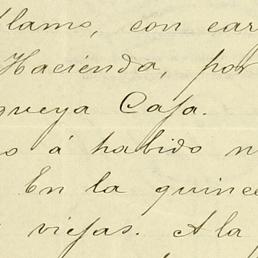 llamo, con car
Hacienda, por
queya Casa.
o á habido n
En la quince
viejas. A la